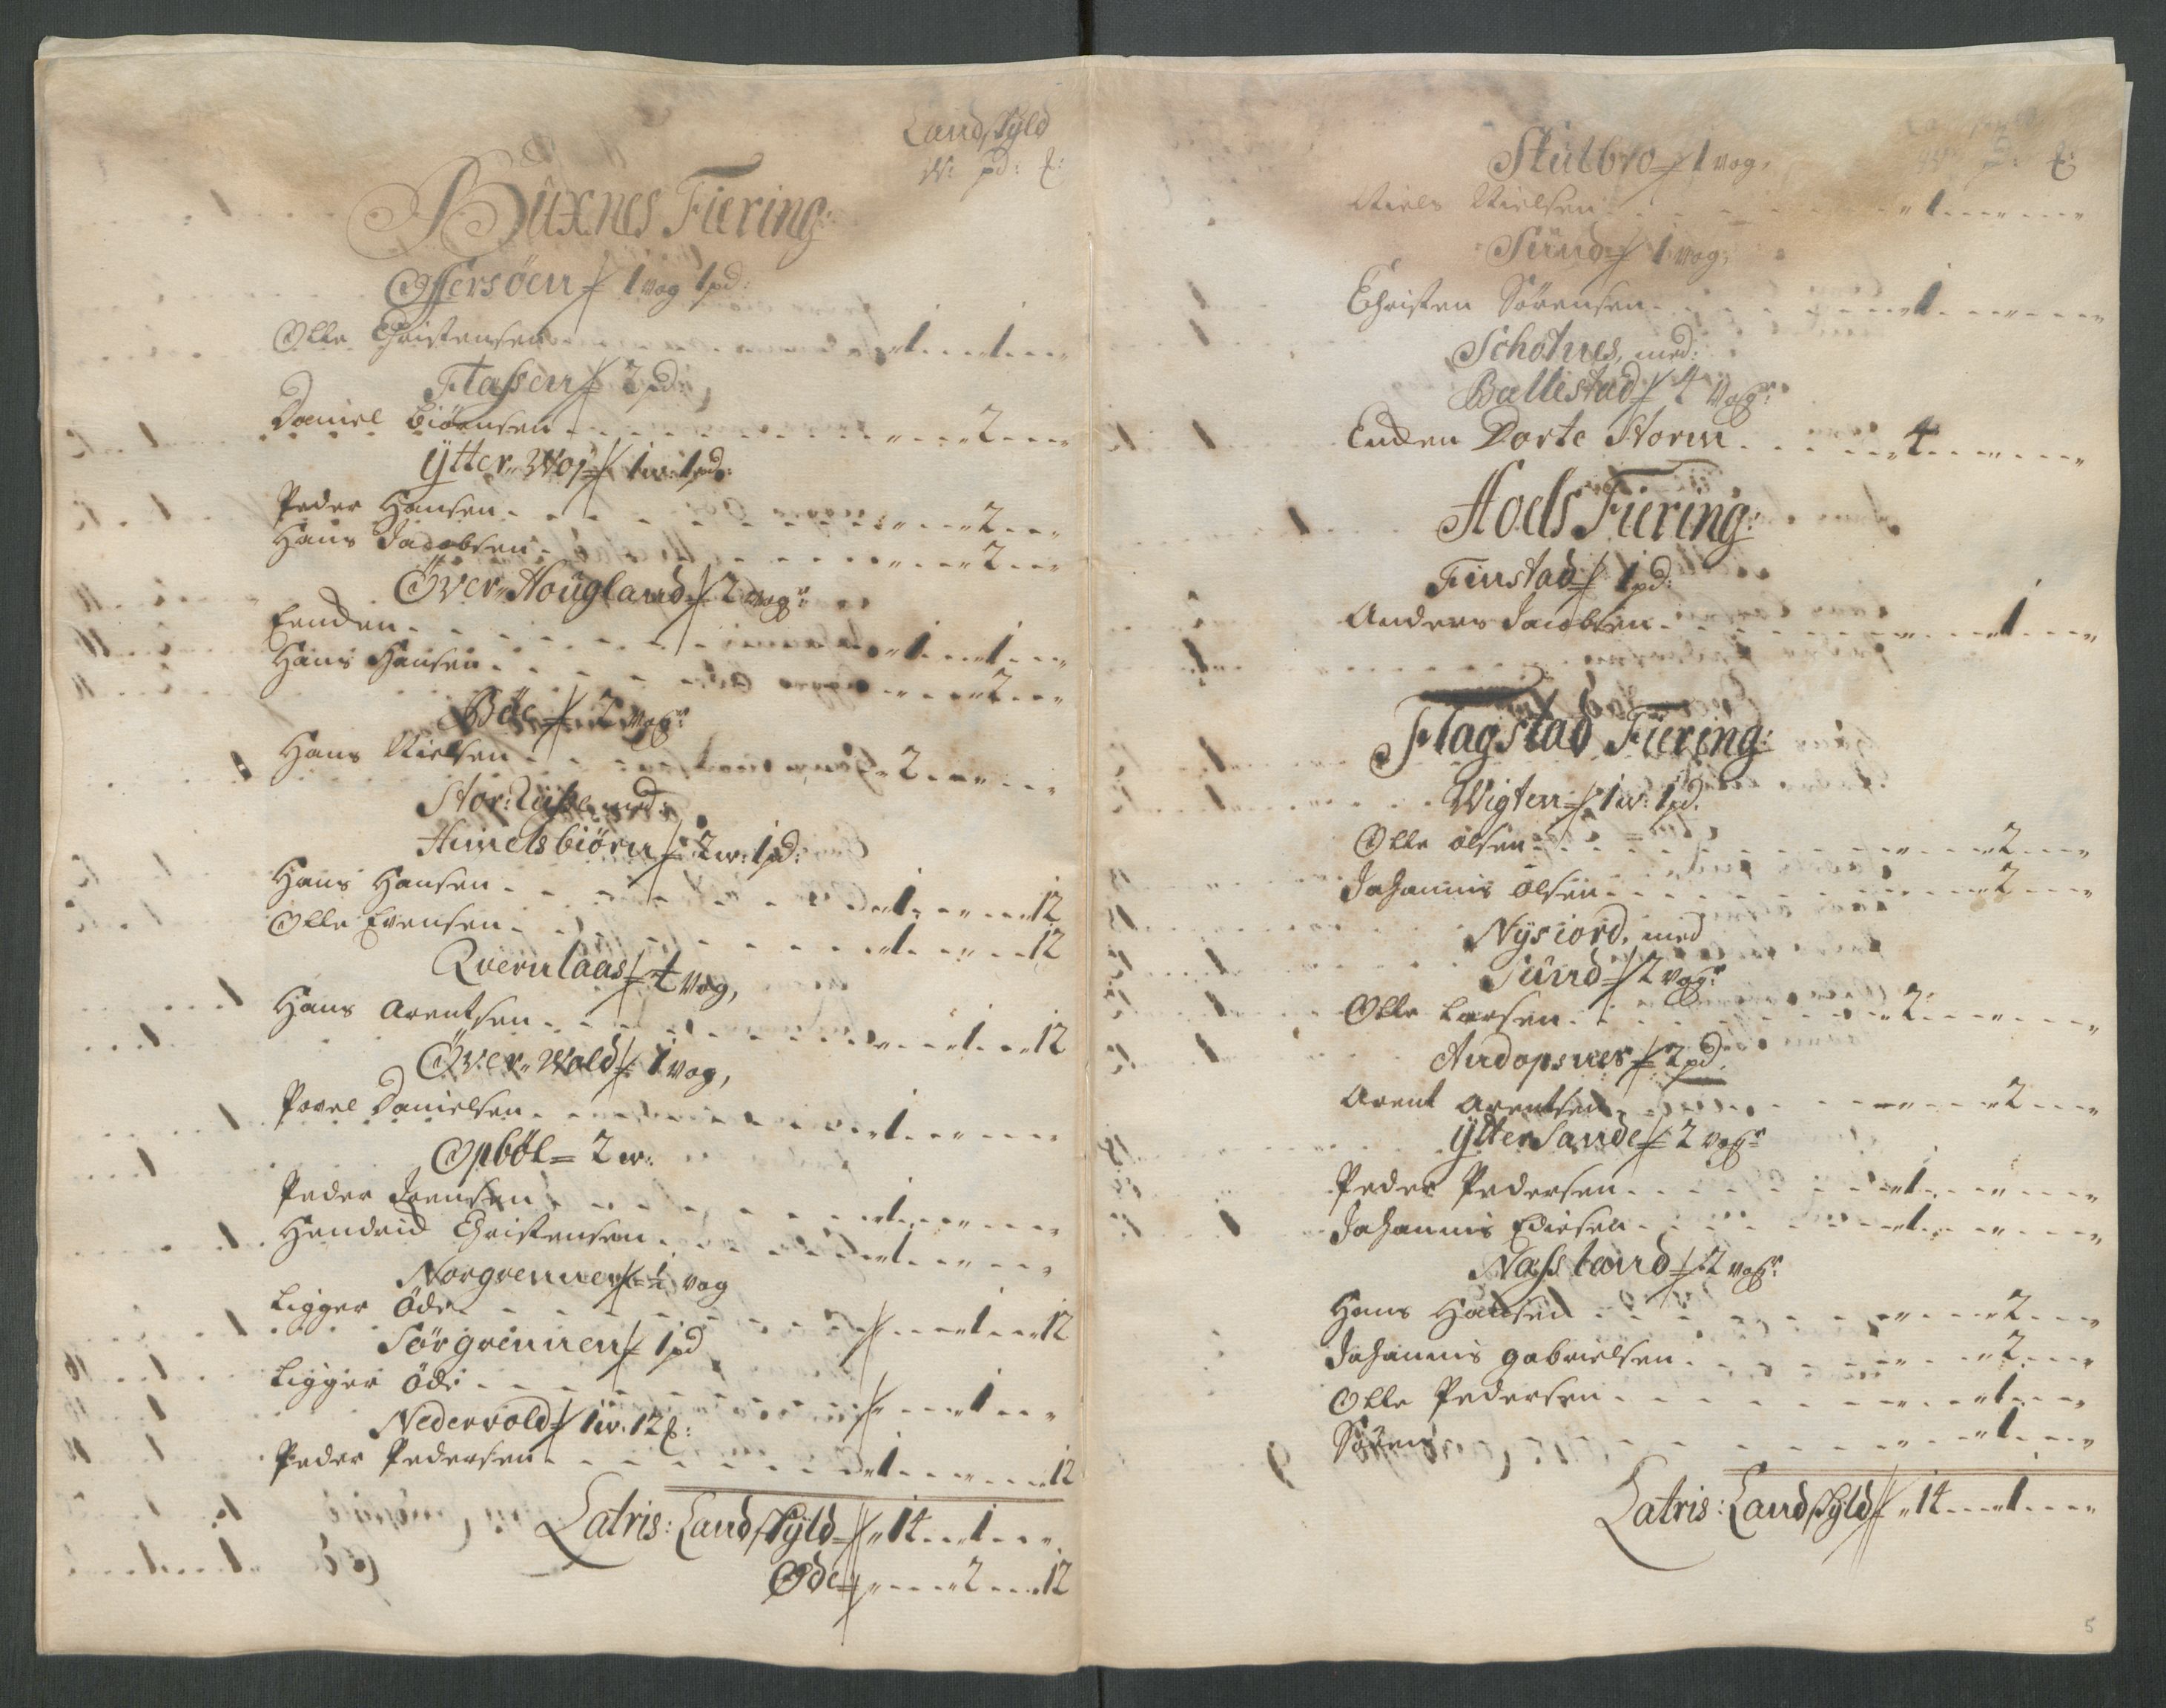 Landskyld
w: pd: ℔:
Buxnes Fiering:
Offersöen 1 vog 1 pd:
Olle Christensen 1 1
Flassen 2 pd:
Daniel Biörnsen 2
Ytter Woj 1 w: 1 pd:
Peder Hansen 2
Hans Jacobsen 2
Över Hougland 2 vog:
Encken 1 1
Hans Hansen 2
Böe 2 vog:
Hans Nielsen 2
Stor: med:
Himelsbiörn 2 w: 1 pd:
Hans Hansen 1 12
Olle Evensen 1 12
Qvernlaas ½ vog,
Hans Arentsen 1 12
Över Wold 1 vog,
Povel Danielsen 1
Opböl = 2 w:
Peder Jensen 1
Hendrid Christensen 1
Norgrennen ½ vog
Ligger Öde 1 12
Sörgrennen 1 pd
Ligger Öde 1
Nedervold 1 w: 12 ℔:
Peder Pedersen 1 12
Latris: Landskyld 14 1
Öde 2 12
℔:
Stutbro 1 vog,
Niels Nielsen 1
Sund 1 vog,
Christen Sörensen 1
Schotnes, med:
Ballestad 4 Vog:
Encken Dorte Storm 4
Hoels Fiering:
Finstad 1 pd:
Anders Jacobsen 1
Flagstad Fiering:
Wigten 1 w: 1 pd.
Olle Olsen 2
Johannis Olsen 2
Nysiord, med
Sund 2 vog:
Olle Larsen 2
Andopsnes 2 pd.
Arent Arentsen 2
Ytter Sande 2 vog:
Peder Pedersen 1
Johannis 1
Nasland 2 vog:
Hans Hansen 2
Johannis Gabrielsen 2
Olle Pedersen 1
Sören 1
Latris: Landskyld 14 1
5